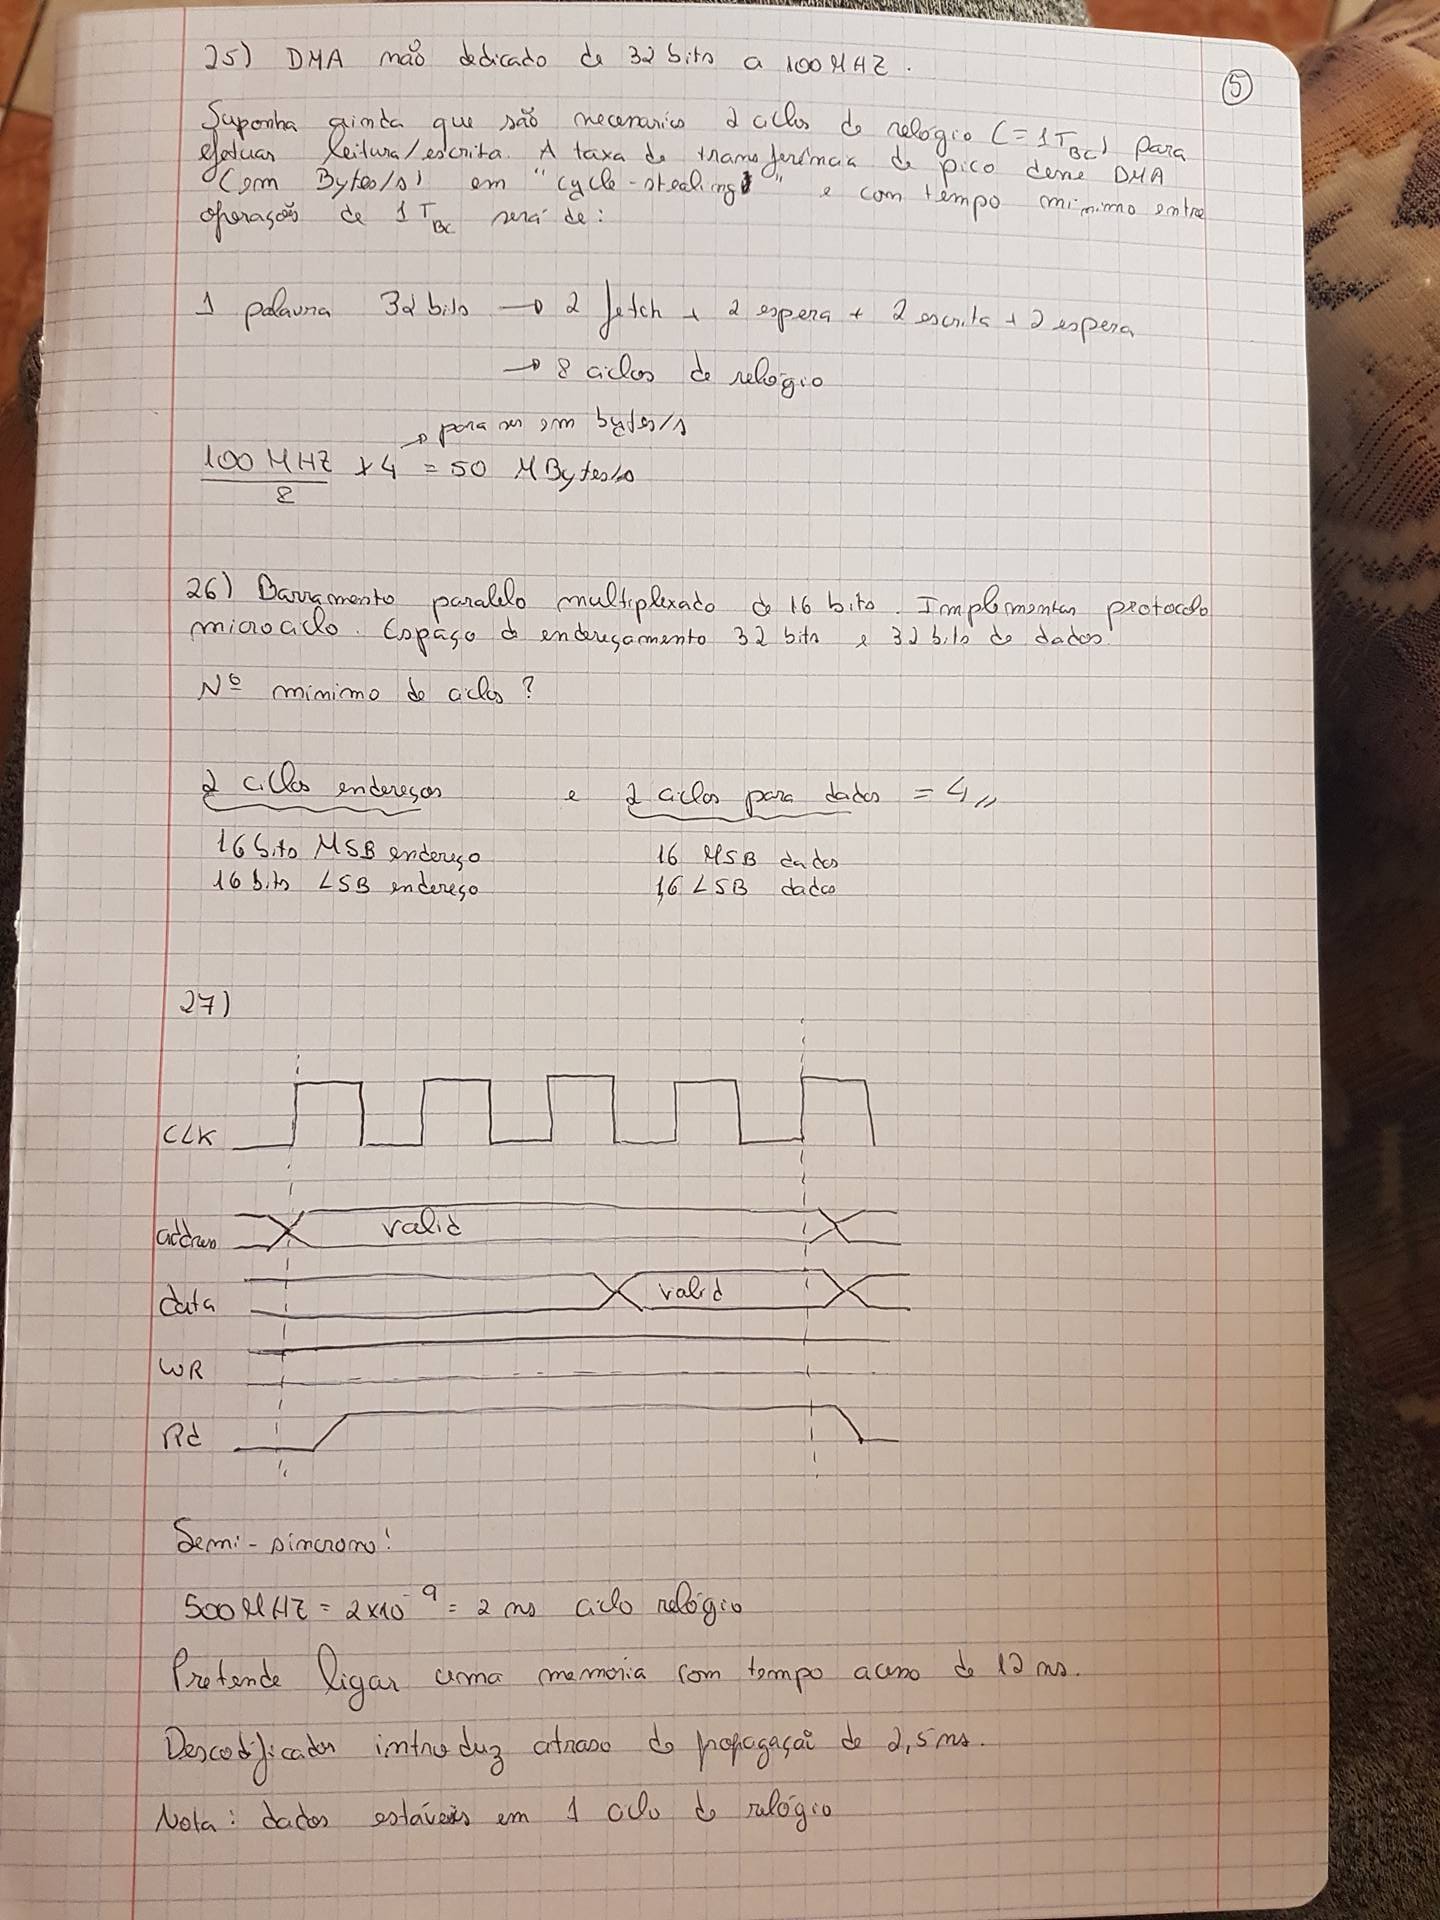 25) DMA não dedicado de 32 bits a 100 MHZ.
5
Suponha ainda que são necessarios 2 ciclos de relógio (= 1 TBC) para
efetuar leitura/escrita. A taxa de transferência de pico desse DMA
(em Bytes/s) em "cycle-stealing" e com tempo mínimo entre
operações de 1 TBC será de:
1 palavra 32 bits → 2 fetch + 2 espera + 2 escrita + 2 espera
→ 8 ciclos de relógio
→ para ser em bytes/s
100 MHZ / 8 × 4 = 50 MBytes/s
26) Barramento paralelo multiplexado de 16 bits. Implementar protocolo
microciclo. Espaço de endereçamento 32 bits e 32 bits de dados.
Nº minimo de ciclos?
2 ciclos endereços e 2 ciclos para dados = 4 //
16 bits MSB endereço 16 MSB dados
16 bits LSB endereço 16 LSB dados
27)
CLK
address valid
data valid
WR
Rd
Semi-sincrono!
500 MHZ = 2×10⁻⁹ = 2 ns ciclo relógio
Pretende ligar uma memoria com tempo acesso de 12 ns.
Descodificador introduz atraso de propagação de 2,5 ns.
Nota: dados estáveis em 1 ciclo de relógio